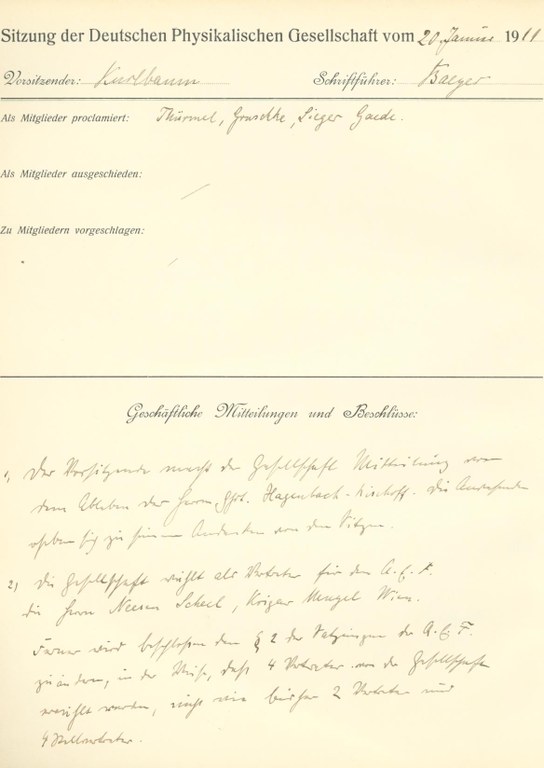 Sitzung der Deutschen Physikalischen Gesellschaft vom 20 Januar 1911
Vorsitzender: Kurlbaum Schriftführer: Baeyer
Als Mitglieder proclamiert: Thürmel, Gruschke, Sieger Gaede.
Als Mitglieder ausgeschieden:
Zu Mitgliedern vorgeschlagen:
Geschäftliche Mitteilungen und Beschlüsse:
1, Der Vorsitzende macht der Gesellschaft Mitteilung von
dem Ableben des Herrn Hagenbach-Bischoff. Die Anwesenden
erheben sich zu seinem Andenken von den Sitzen.
2, Die Gesellschaft wählt als Vertreter für den A.E.F.
die Herrn Neesen Scheel, Krigar Menzel Wien.
Ferner wird beschlossen den § 2 der Satzungen des A.E.F.
zu ändern, in der Weise, daß 4 Vertreter von der Gesellschaft
gewählt werden, nicht wie bisher 2 Vertreter und
4 Stellvertreter.